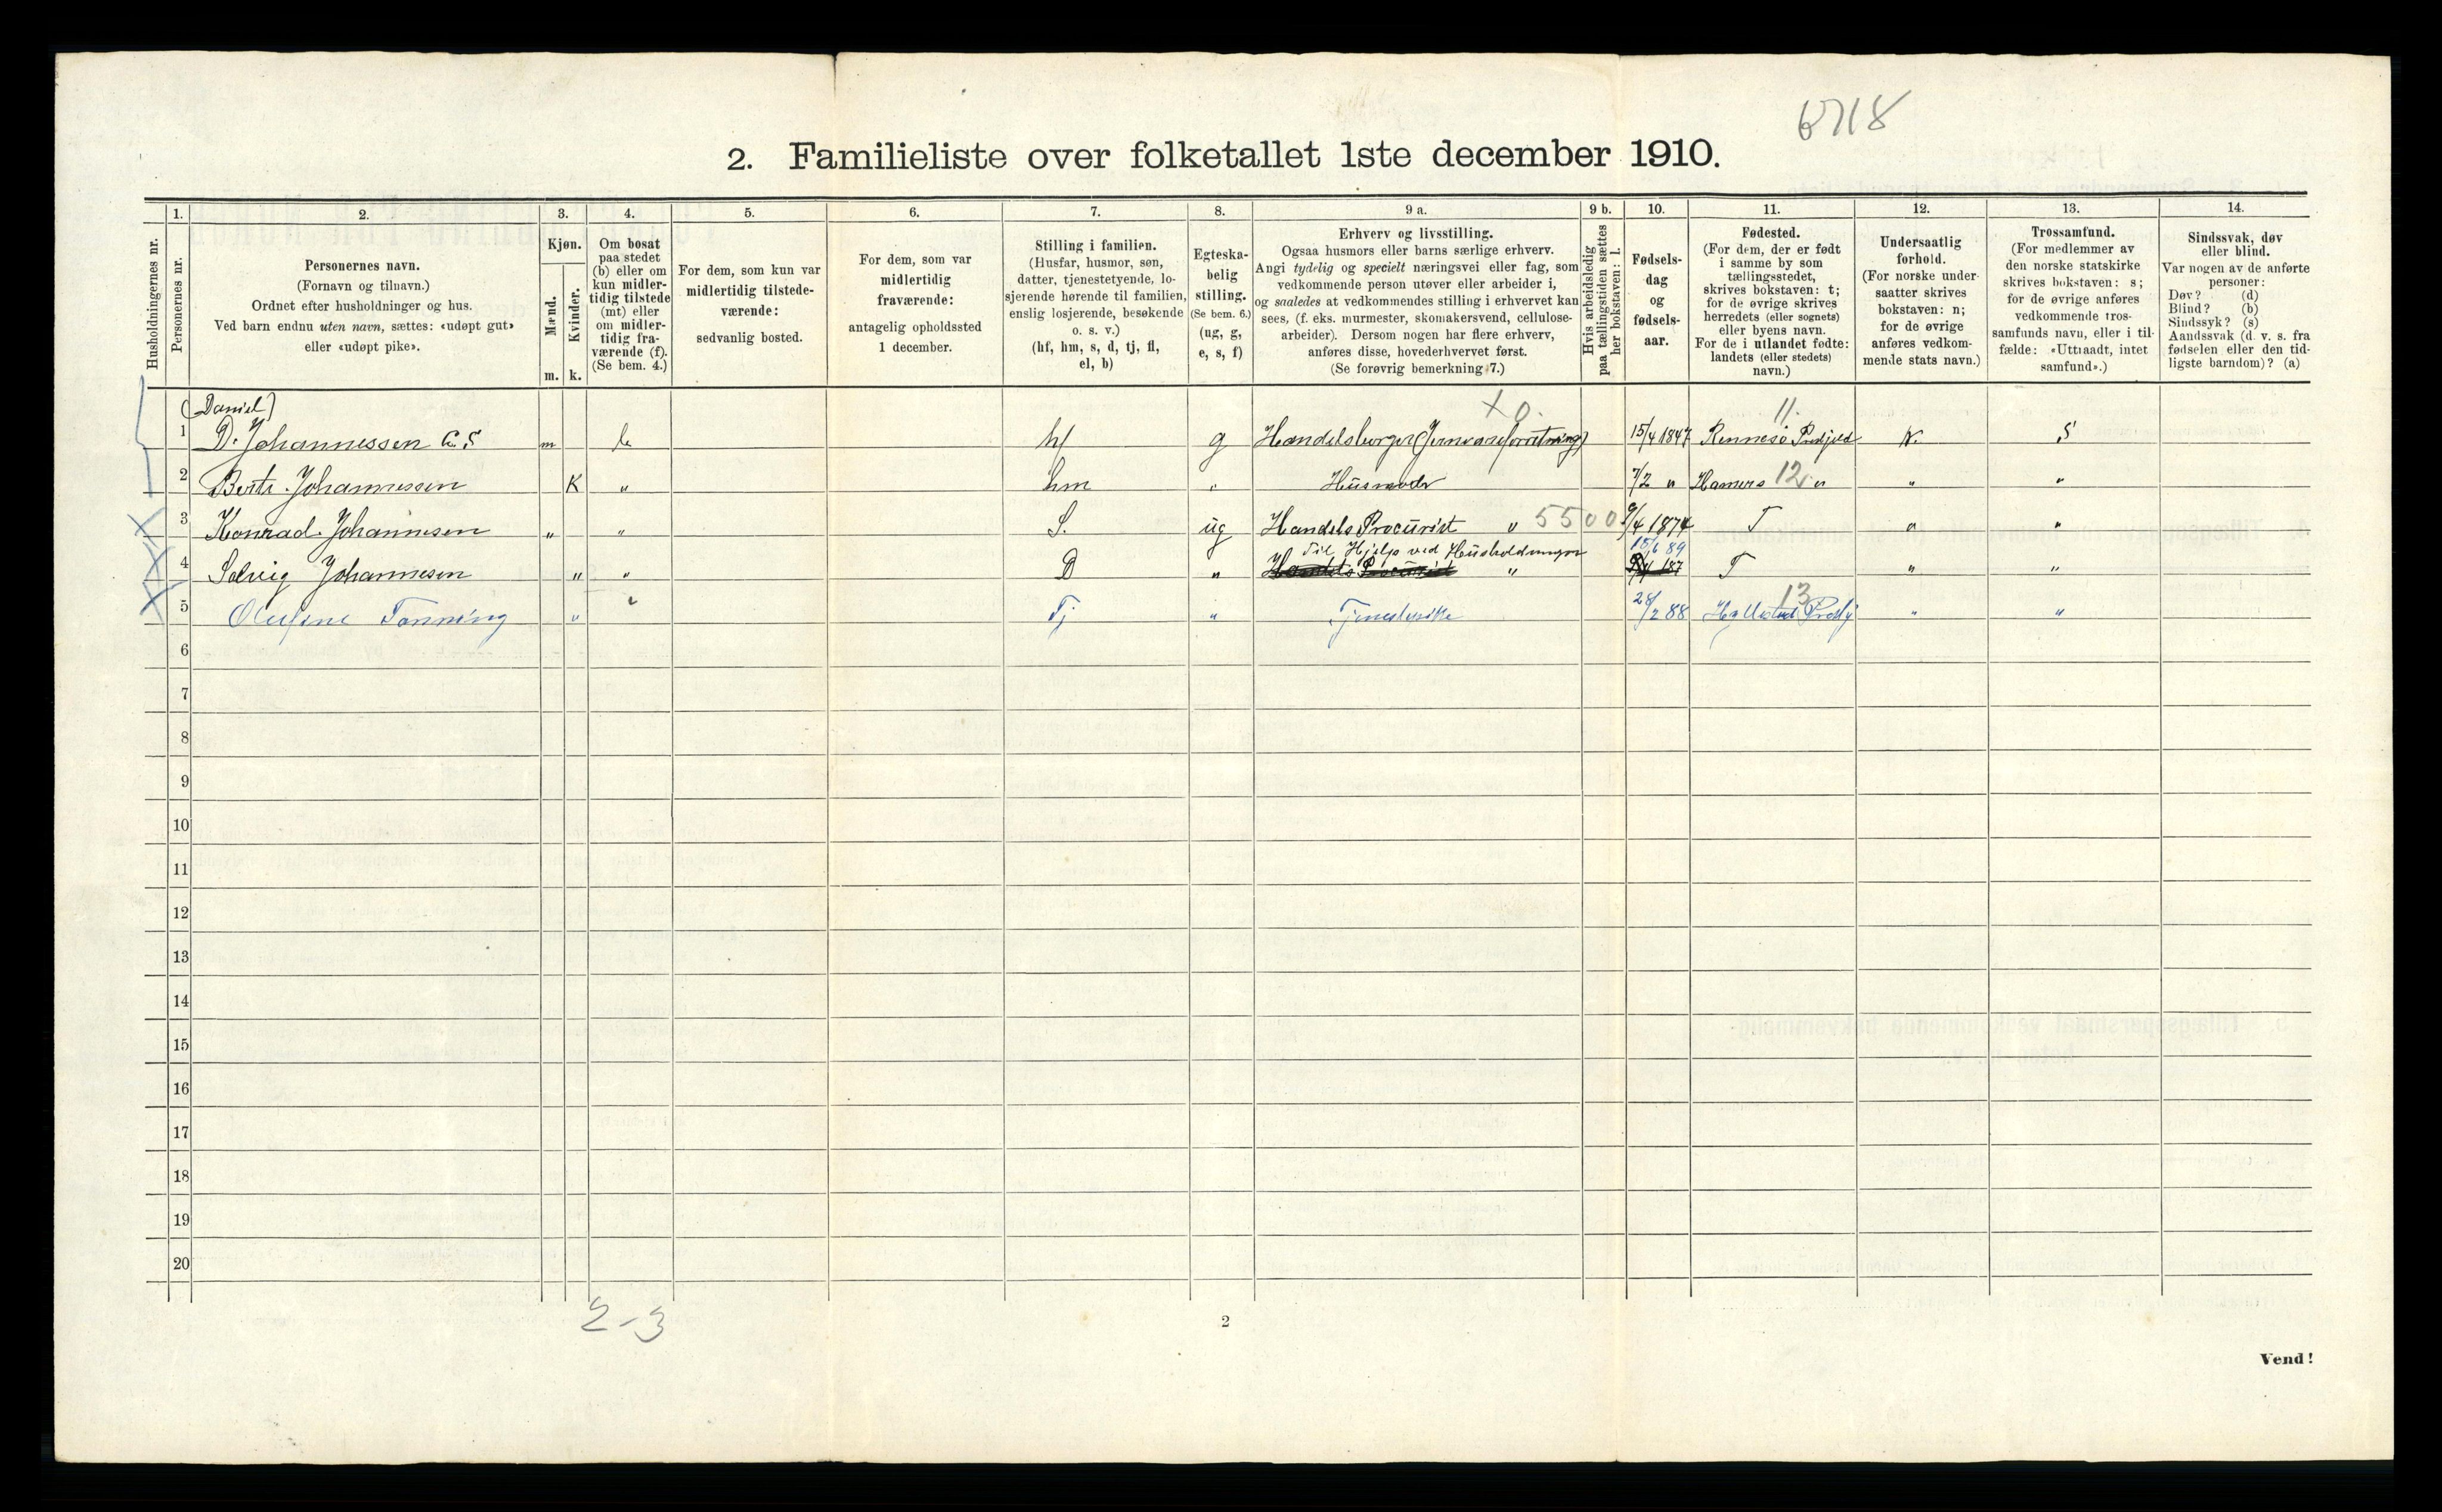 6718
2. Familieliste over folketallet 1ste december 1910.
Husholdningernes nr.
1. Personernes nr.
2. Personernes navn.
(Fornavn og tilnavn.)
Ordnet efter husholdninger og hus.
Ved barn endnu uten navn, sættes: «udøpt gut»
eller «udøpt pike».
3. Kjøn.
Mænd. Kvinder.
m. k.
4. Om bosat
paa stedet
(b) eller om
kun midler-
tidig tilstede
(mt) eller
om midler-
tidig fra-
værende (f).
(Se bem. 4.)
5. For dem, som kun var
midlertidig tilstede-
værende:
sedvanlig bosted.
6. For dem, som var
midlertidig
fraværende:
antagelig opholdssted
1 december.
7. Stilling i familien.
(Husfar, husmor, søn,
datter, tjenestetyende, lo-
sjerende hørende til familien,
enslig losjerende, besøkende
o. s. v.)
(hf, hm, s, d, tj, fl,
el, b)
8. Egteska-
belig
stilling.
(Se bem. 6.)
(ug, g,
e, s, f)
9 a. Erhverv og livsstilling.
Ogsaa husmors eller barns særlige erhverv.
Angi tydelig og specielt næringsvei eller fag, som
vedkommende person utøver eller arbeider i,
og saaledes at vedkommendes stilling i erhvervet kan
sees, (f. eks. murmester, skomakersvend, cellulose-
arbeider). Dersom nogen har flere erhverv,
anføres disse, hovederhvervet først.
(Se forøvrig bemerkning 7.)
9 b. Hvis arbeidsledig
paa tællingstiden sættes
her bokstaven: l.
10. Fødsels-
dag
og
fødsels-
aar.
11. Fødested.
(For dem, der er født
i samme by som
tællingsstedet,
skrives bokstaven: t;
for de øvrige skrives
herredets (eller sognets)
eller byens navn.
For de i utlandet fødte:
landets (eller stedets)
navn.)
12. Undersaatlig
forhold.
(For norske under-
saatter skrives
bokstaven: n;
for de øvrige
anføres vedkom-
mende stats navn.)
13. Trossamfund.
(For medlemmer av
den norske statskirke
skrives bokstaven: s;
for de øvrige anføres
vedkommende tros-
samfunds navn, eller i til-
fælde: «Uttraadt, intet
samfund».)
14. Sindssvak, døv
eller blind.
Var nogen av de anførte
personer:
Døv? (d)
Blind? (b)
Sindssyk? (s)
Aandssvak (d. v. s. fra
fødselen eller den tid-
ligste barndom)? (a)
(Daniel) X 0. 11.
1 D. Johannessen m b hf g Handelsborger (Jernvareforretning) 15/4 1847 Rennesø Prestjeld N. S
2 Berte Johannessen K " hm " Husmoder 7/2 " 12 " " "
3 Konrad Johannesen " " S. ug Handels Procurist " 5500 9/4 1874 T " "
Til Hjelp ved Husholdningen 15/6 89
4 Solvig Johannesen " " D " " T " "
13
5 Olufine Tonning " " Tj " Tjenestepike 28/2 88 " "
6
7
8
9
10
11
12
13
14
15
16
17
18
19
20
2-3
2
Vend!